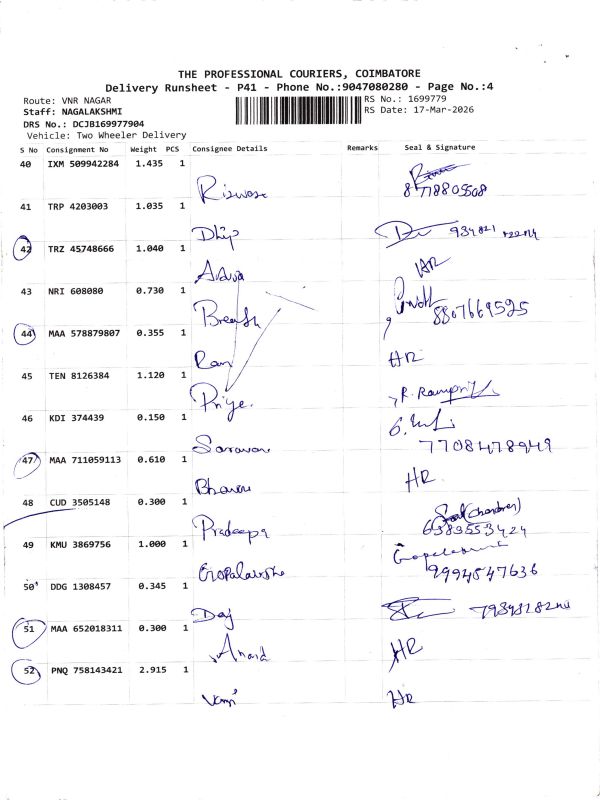 THE PROFESSIONAL COURIERS, COIMBATORE
Delivery Runsheet - P41 - Phone No.:9047080280 - Page No.:4
Route: VNR NAGAR
RS No.: 1699779
Staff: NAGALAKSHMI
RS Date: 17-Mar-2026
DRS No.: DCJB169977904
Vehicle: Two Wheeler Delivery
S No Consignment No Weight PCS Consignee Details Remarks Seal & Signature
40 IXM 509942284 1.435 1
8778805508
41 TRP 4203003 1.035 1
Dhip
42 TRZ 45748666 1.040 1
HR
43 NRI 608080 0.730 1
8807669525
44 MAA 578879807 0.355 1
Ram HR
45 TEN 8126384 1.120 1
Priye. R. Rampriya
46 KDI 374439 0.150 1
Saravan 7708478949
47 MAA 711059113 0.610 1
Bhavani HR
48 CUD 3505148 0.300 1
Pradeepa 6383553424
49 KMU 3869756 1.000 1
Gopalakrishn 9994547636
50 DDG 1308457 0.345 1
51 MAA 652018311 0.300 1
Anand HR
52 PNQ 758143421 2.915 1
HR